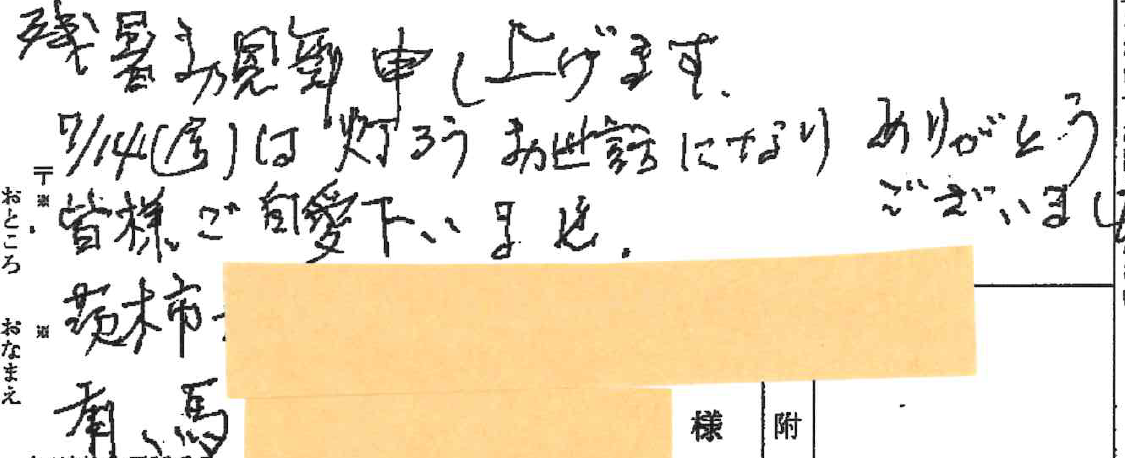 残暑お見舞申し上げます.
7/14(金)は灯ろうお世話になりありがとう
ございました
皆様ご自愛下いませ.
〒
※
おところ
茨木市
※
おなまえ
有馬
様
附